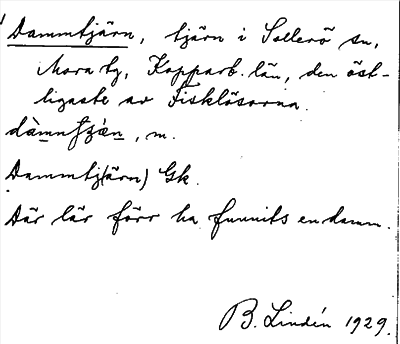 Dammtjärn, tjärn i Sollerö sn,
Mora tg, Kopparb. län, den öst-
ligaste av Fisklösarna.
dàmntjæn, m.
Dammtj(ärn) Gk.
Där lär förr ha funnits en damm.
B. Lindén 1929.